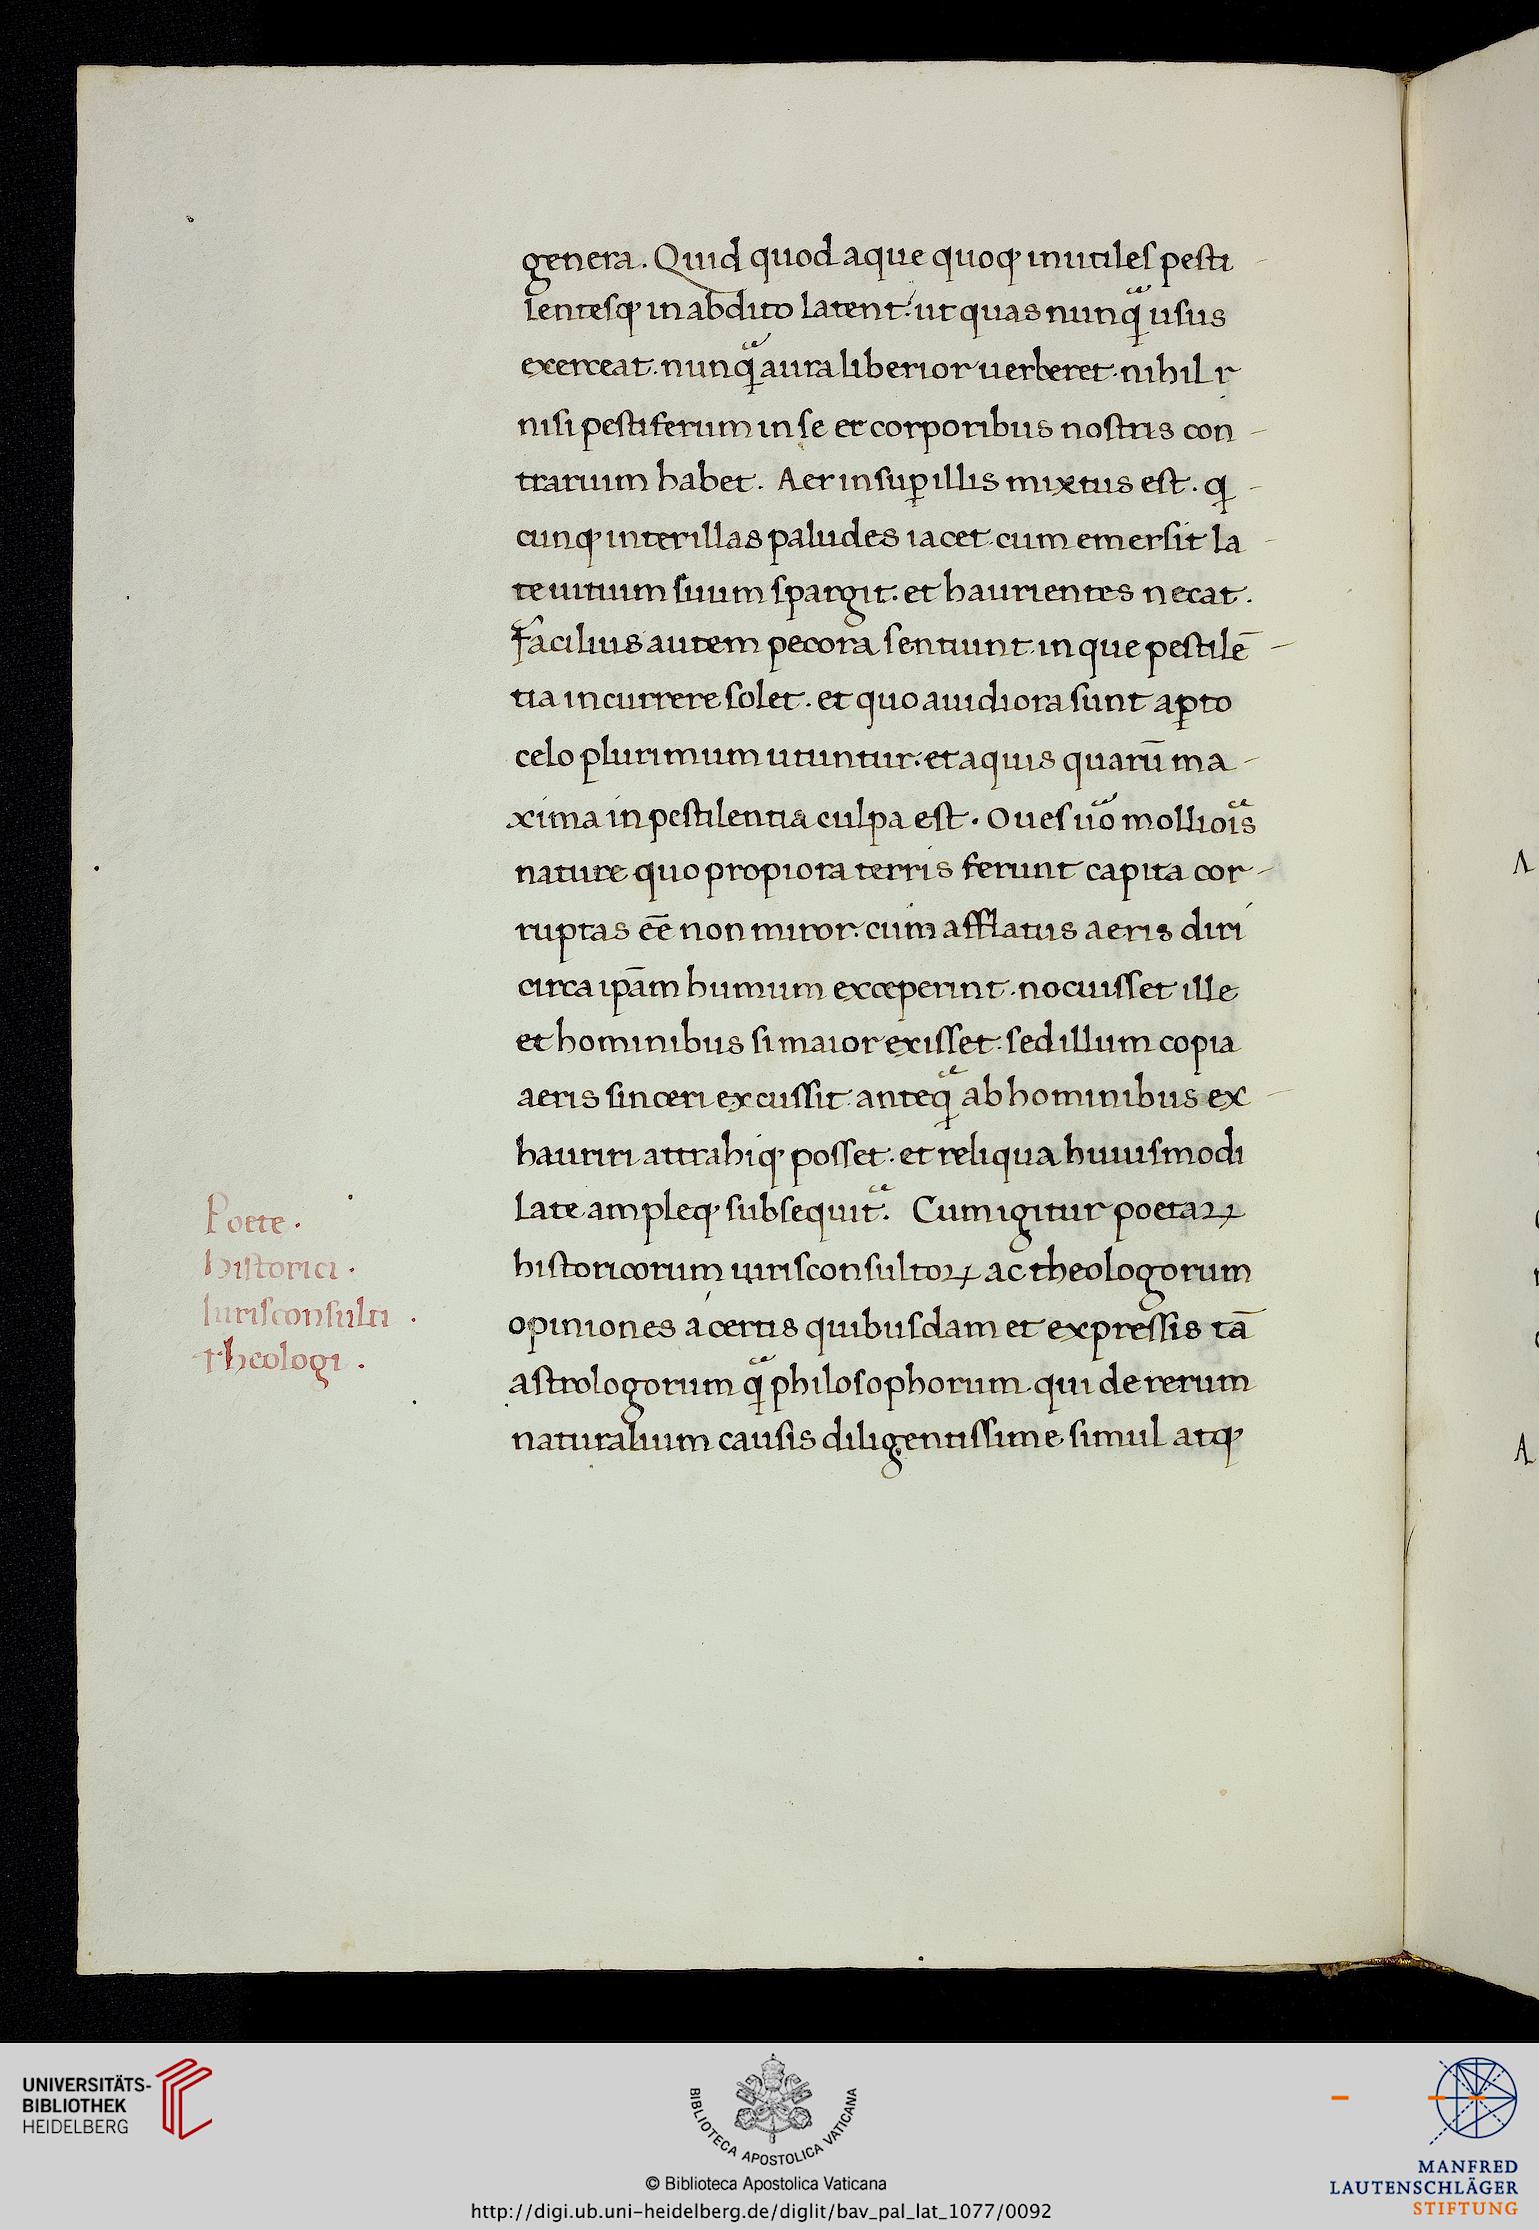 genera. Quid quod aque quoqꝫ inutiles pesti
lentesqꝫ in abdito latent: ut quas nunqᷓ usus
exerceat. nunqᷓ aura liberior uerberet. nihil
nisi pestiferum in se et corporibus nostris con
trarium habet. Aer insuꝑ illis mixtus est. ꝗ
cunqꝫ inter illas paludes iacet. cum emersit la
te uitium suum spargit. et haurientes necat.
Facilius autem pecora sentiunt. in que pestilē
tia incurrere solet. et quo auidiora sunt aꝑto
celo plurimum utuntur. et aquis quarū ma
xima in pestilentia culpa est. Oues uͦo mollioᷓis
nature quo propiora terris ferunt capita cor
ruptas ēē non miror. cum afflatus aeris diri
circa ip̄am humum exceperint. nocuisset ille
et hominibus si maior exisset. sed illum copia
aeris sinceri excussit. anteqᷓ ab hominibus ex
hauriri attrahiqꝫ posset. et reliqua huiusmodi
late ampleqꝫ subsequitᷓ. Cum igitur poetaꝝ
historicorum iurisconsultoꝝ ac theologorum
opiniones a certis quibusdam et expressis tā
astrologorum qᷓ philosophorum. qui de rerum
naturalium causis diligentissime simul atqꝫ
Poete.
Historici.
Iurisconsulti.
Theologi.
A
A
UNIVERSITÄTS-
BIBLIOTHEK
HEIDELBERG
BIBLIOTECA APOSTOLICA VATICANA
© Biblioteca Apostolica Vaticana
http://digi.ub.uni-heidelberg.de/diglit/bav_pal_lat_1077/0092
MANFRED
LAUTENSCHLÄGER
STIFTUNG